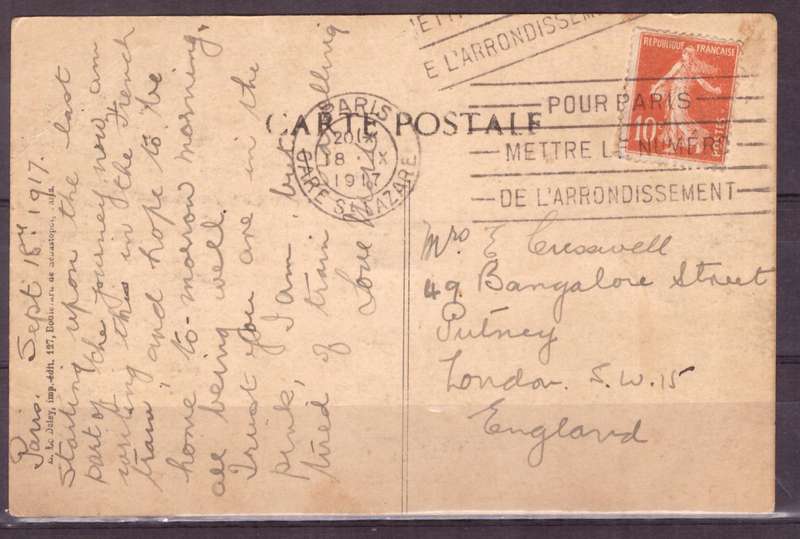 METTRE
E L'ARRONDISSEMENT
REPUBLIQUE FRANCAISE
10
POSTES
POUR PARIS
METTRE LE NUMERO
DE L'ARRONDISSEMENT
CARTE POSTALE
PARIS
18 IX
1917
GARE ST LAZARE
Paris. Sept 18th 1917.
Starting upon the last
part of the journey now am
writing this in the French
train, and hope to be
home to-morrow morning,
all being well.
I trust you are in the
pink, I am, but
tired of train travelling
Love
Le Deley, imp.-édit. 127, Boulevard de Sébastopol, Paris
Mrs E Cresswell
49 Bangalore Street
Putney
London. S.W. 15
England